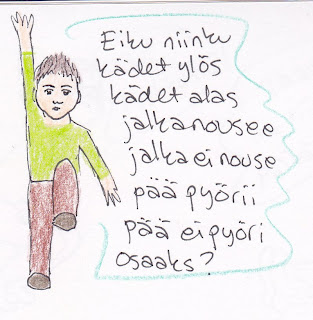 Eiku niinku
kädet ylös
kädet alas
jalka nousee
jalka ei nouse
pää pyörii
pää ei pyöri
osaaks?